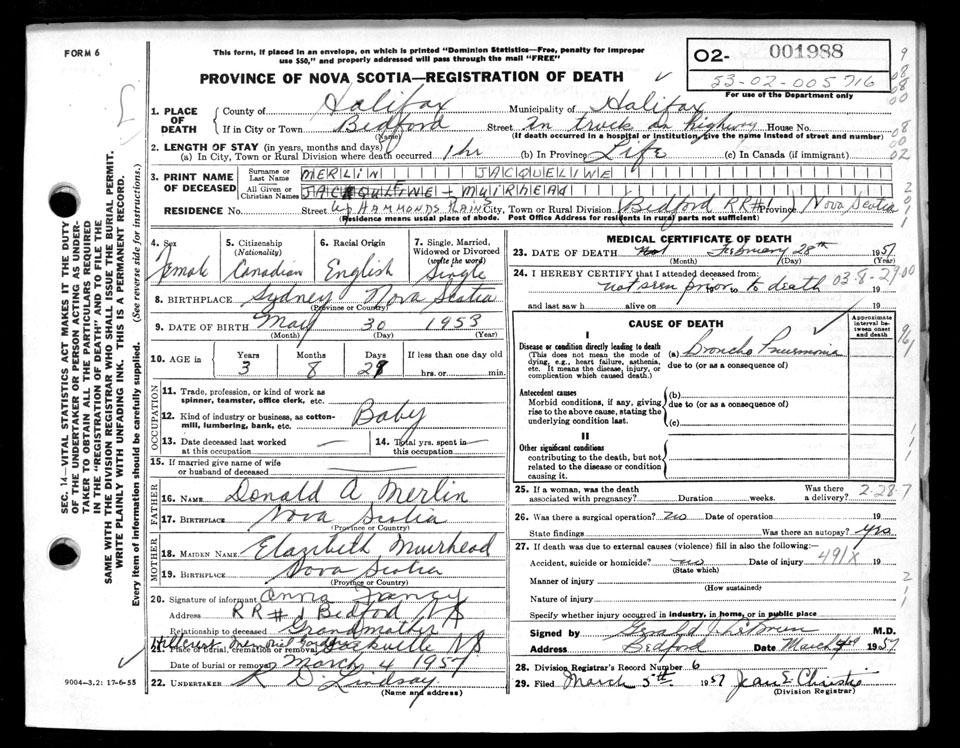 FORM 6
This form, if placed in an envelope, on which is printed "Dominion Statistics—Free, penalty for improper
use $50," and properly addressed will pass through the mail "FREE"
02- 001988
PROVINCE OF NOVA SCOTIA—REGISTRATION OF DEATH
53-02-005716
For use of the Department only
1. PLACE OF DEATH County of Halifax Municipality of Halifax
If in City or Town Bedford Street In truck on highway House No.
(Name) (If death occurred in a hospital or institution, give the name instead of street and number)
2. LENGTH OF STAY (in years, months and days)
(a) In City, Town or Rural Division where death occurred 1 hr (b) In Province Life (c) In Canada (if immigrant)
3. PRINT NAME OF DECEASED Surname or Last Name MERLIN JACQUELINE
All Given or Christian Names JACQUELINE MUIRHEAD
RESIDENCE No. Street HAMMONDS PLAINS City, Town or Rural Division Bedford RR#1 Province Nova Scotia
(Residence means usual place of abode. Post Office Address for residents in rural parts not sufficient)
4. Sex Female
5. Citizenship (Nationality) Canadian
6. Racial Origin English
7. Single, Married, Widowed or Divorced (write the word) Single
8. BIRTHPLACE Sydney Nova Scotia
(Province or Country)
9. DATE OF BIRTH May 30 1953
(Month) (Day) (Year)
10. AGE in Years 3 Months 8 Days 28 If less than one day old hrs. or min.
OCCUPATION
11. Trade, profession, or kind of work as spinner, teamster, office clerk, etc.
12. Kind of industry or business, as cotton-mill, lumbering, bank, etc. Baby
13. Date deceased last worked at this occupation —
14. Total yrs. spent in this occupation —
15. If married give name of wife or husband of deceased
FATHER
16. NAME Donald A Merlin
17. BIRTHPLACE Nova Scotia
(Province or Country)
MOTHER
18. MAIDEN NAME Elazibeth Muirhead
19. BIRTHPLACE Nova Scotia
(Province or Country)
20. Signature of informant Anna
Address RR#1 Bedford NS
Relationship to deceased Grandmother
21. Place of burial, cremation or removal Hillcrest Memorial Gardens Sackville NS
Date of burial or removal March 4 1957
22. UNDERTAKER R D Lindsay
(Name and address)
9004—3.2: 17-6-55
MEDICAL CERTIFICATE OF DEATH
23. DATE OF DEATH February 28th 1957
(Month) (Day) (Year)
24. I HEREBY CERTIFY that I attended deceased from: 03-8-29 00
not seen prior to death 19
and last saw h alive on 19
CAUSE OF DEATH
Approximate interval between onset and death
I
Disease or condition directly leading to death (a) Broncho Pneumonia
(This does not mean the mode of dying, e.g., heart failure, asthenia, etc. It means the disease, injury, or complication which caused death.)
due to (or as a consequence of)
Antecedent causes (b)
Morbid conditions, if any, giving rise to the above cause, stating the underlying condition last.
due to (or as a consequence of)
(c)
II
Other significant conditions
contributing to the death, but not related to the disease or condition causing it.
25. If a woman, was the death associated with pregnancy? Duration weeks. Was there a delivery? 2-28-7
26. Was there a surgical operation? no Date of operation 19
State findings Was there an autopsy? yes
27. If death was due to external causes (violence) fill in also the following:—
Accident, suicide or homicide? no Date of injury 491X 19
(State which)
Manner of injury
(How sustained)
Nature of injury
Specify whether injury occurred in industry, in home, or in public place
Signed by Gerald M.D.
Address Bedford Date March 1957
28. Division Registrar's Record Number 6
29. Filed March 5th 1957 Jean E. Christie
(Division Registrar)
SEC. 14—VITAL STATISTICS ACT MAKES IT THE DUTY
OF THE UNDERTAKER OR PERSON ACTING AS UNDER-
TAKER TO OBTAIN ALL THE PARTICULARS REQUIRED
IN THE "REGISTRATION OF DEATH" AND TO FILE THE
SAME WITH THE DIVISION REGISTRAR WHO SHALL ISSUE THE BURIAL PERMIT.
WRITE PLAINLY WITH UNFADING INK. THIS IS A PERMANENT RECORD.
Every item of information should be carefully supplied. (See reverse side for instructions.)